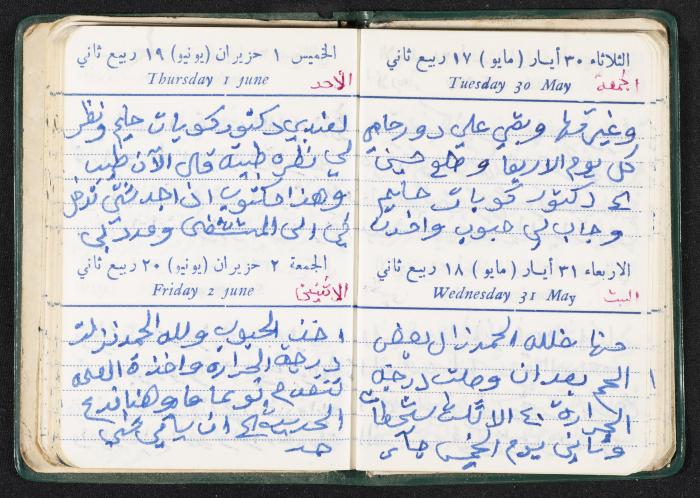 الثلاثاء ٣٠ أيار (مايو) ١٧ ربيع ثاني
Tuesday 30 May
الجمعة
وغيرتها وبقي علي دور حامي
كل يوم الاربعا و
دكتور كوبات حليم
وجاب لي حبوب واخذت
الاربعاء ٣١ أيار (مايو) ١٨ ربيع ثاني
Wednesday 31 May
السبت
منها فلله الحمد زال بعض
الحم بعد ان وصلت درجة
الحرارة ٤٠ الا
وثاني يوم الخميس جاء
الخميس ١ حزيران (يونيو) ١٩ ربيع ثاني
Thursday 1 June
الأحد
لعندي دكتور كوبات حليم ونظر
لي نظره طبية قال الآن طيب
وهذا مكتوب ان اجد شي تدخل
في الى المستشفى وعدد لي
الجمعة ٢ حزيران (يونيو) ٢٠ ربيع ثاني
Friday 2 June
الاثنين
اخذ الحبوب ولله الحمد نزلت
درجة الحرارة واخذة الصحه
تتقدم نوعا ما وهنا
الحديدة ان
حد